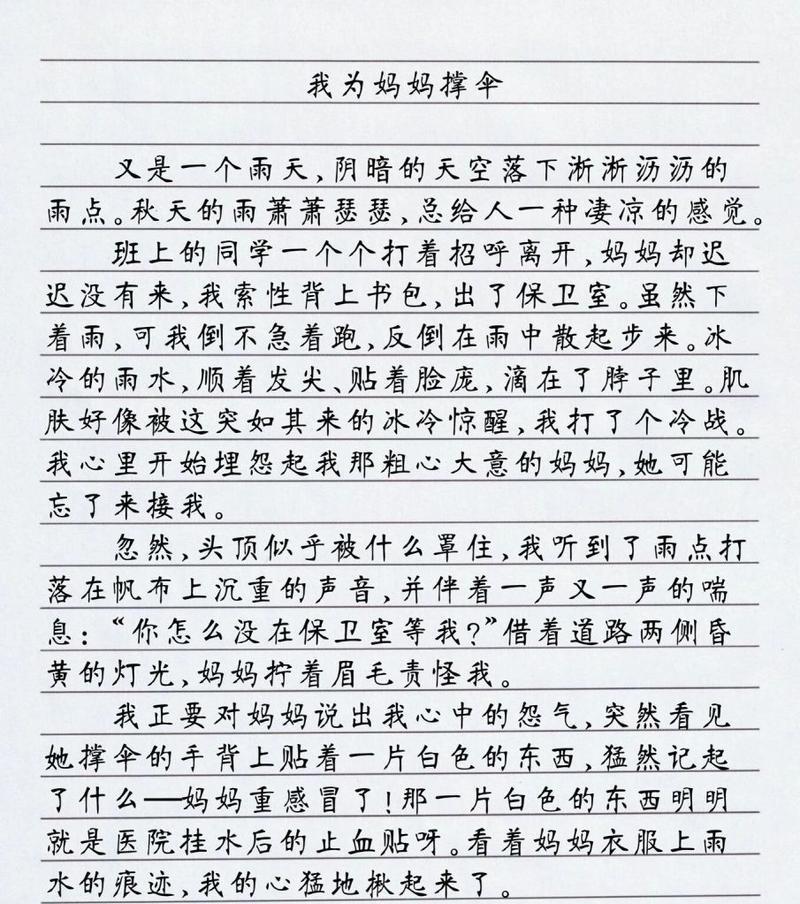 我为妈妈撑伞
又是一个雨天,阴暗的天空落下淅淅沥沥的
雨点。秋天的雨萧萧瑟瑟,总给人一种凄凉的感觉。
班上的同学一个个打着招呼离开,妈妈却迟
迟没有来,我索性背上书包,出了保卫室。虽然下
着雨,可我倒不急着跑,反倒在雨中散起步来。冰
冷的雨水,顺着发尖、贴着脸庞,滴在了脖子里。肌
肤好像被这突如其来的冰冷惊醒,我打了个冷战。
我心里开始埋怨起我那粗心大意的妈妈,她可能
忘了来接我。
忽然,头顶似乎被什么罩住,我听到了雨点打
落在帆布上沉重的声音,并伴着一声又一声的喘
息:“你怎么没在保卫室等我?”借着道路两侧昏
黄的灯光,妈妈拧着眉毛责怪我。
我正要对妈妈说出我心中的怨气,突然看见
她撑伞的手背上贴着一片白色的东西,猛然记起
了什么——妈妈重感冒了!那一片白色的东西明明
就是医院挂水后的止血贴呀。看着妈妈衣服上雨
水的痕迹,我的心猛地揪起来了。